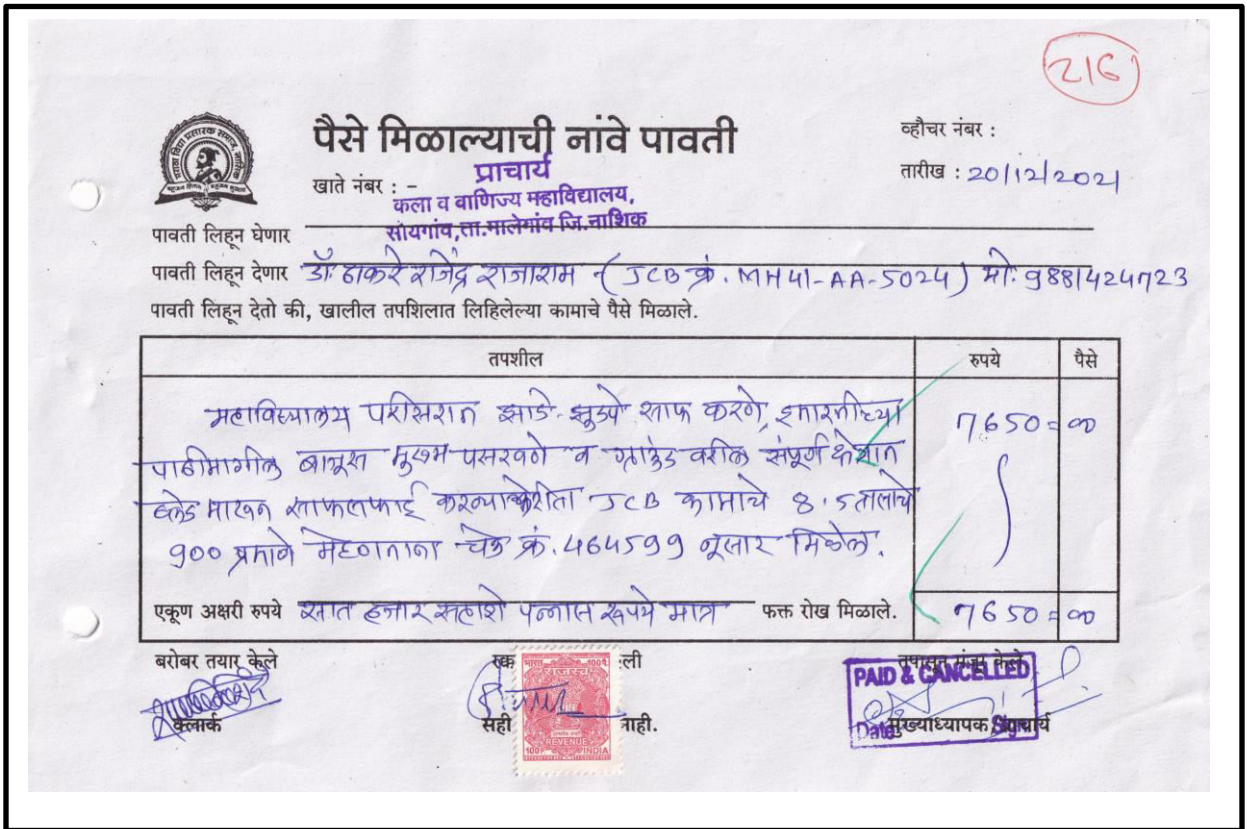 216
मराठा विद्या प्रसारक समाज, नाशिक
बहुजन हिताय बहुजन सुखाय
पैसे मिळाल्याची नांवे पावती
व्हौचर नंबर :
तारीख : 20/12/2021
खाते नंबर : -
प्राचार्य
कला व वाणिज्य महाविद्यालय,
सोयगांव,ता.मालेगांव जि.नाशिक
पावती लिहून घेणार
पावती लिहून देणार डॉ. ठाकरे राजेंद्र राजाराम - (JCB क्रं. MH41-AA-5024) मो. 9881424723
पावती लिहून देतो की, खालील तपशिलात लिहिलेल्या कामाचे पैसे मिळाले.
तपशील रुपये पैसे
महाविद्यालय परिसरात झाडे-झुडपे साफ करणे, इमारतीच्या 7650=00
पाठीमागील बाजूस मुरुम पसरवणे व ग्राउंड वरील संपूर्ण क्षेत्रात
ब्लेड मारून साफसफाई करण्याकरीता JCB कामाचे 8.5 तासाचे
900 प्रमाणे मेहनताना चेक क्रं. 464599 नुसार मिळेल.
एकूण अक्षरी रुपये सात हजार सहाशे पन्नास रुपये मात्र फक्त रोख मिळाले. 7650=00
बरोबर तयार केले
क्लार्क
सही
भारत 100प.
REVENUE
100P INDIA
तपासून मंजूर केले
PAID & CANCELLED
Date Sign
मुख्याध्यापक/प्राचार्य